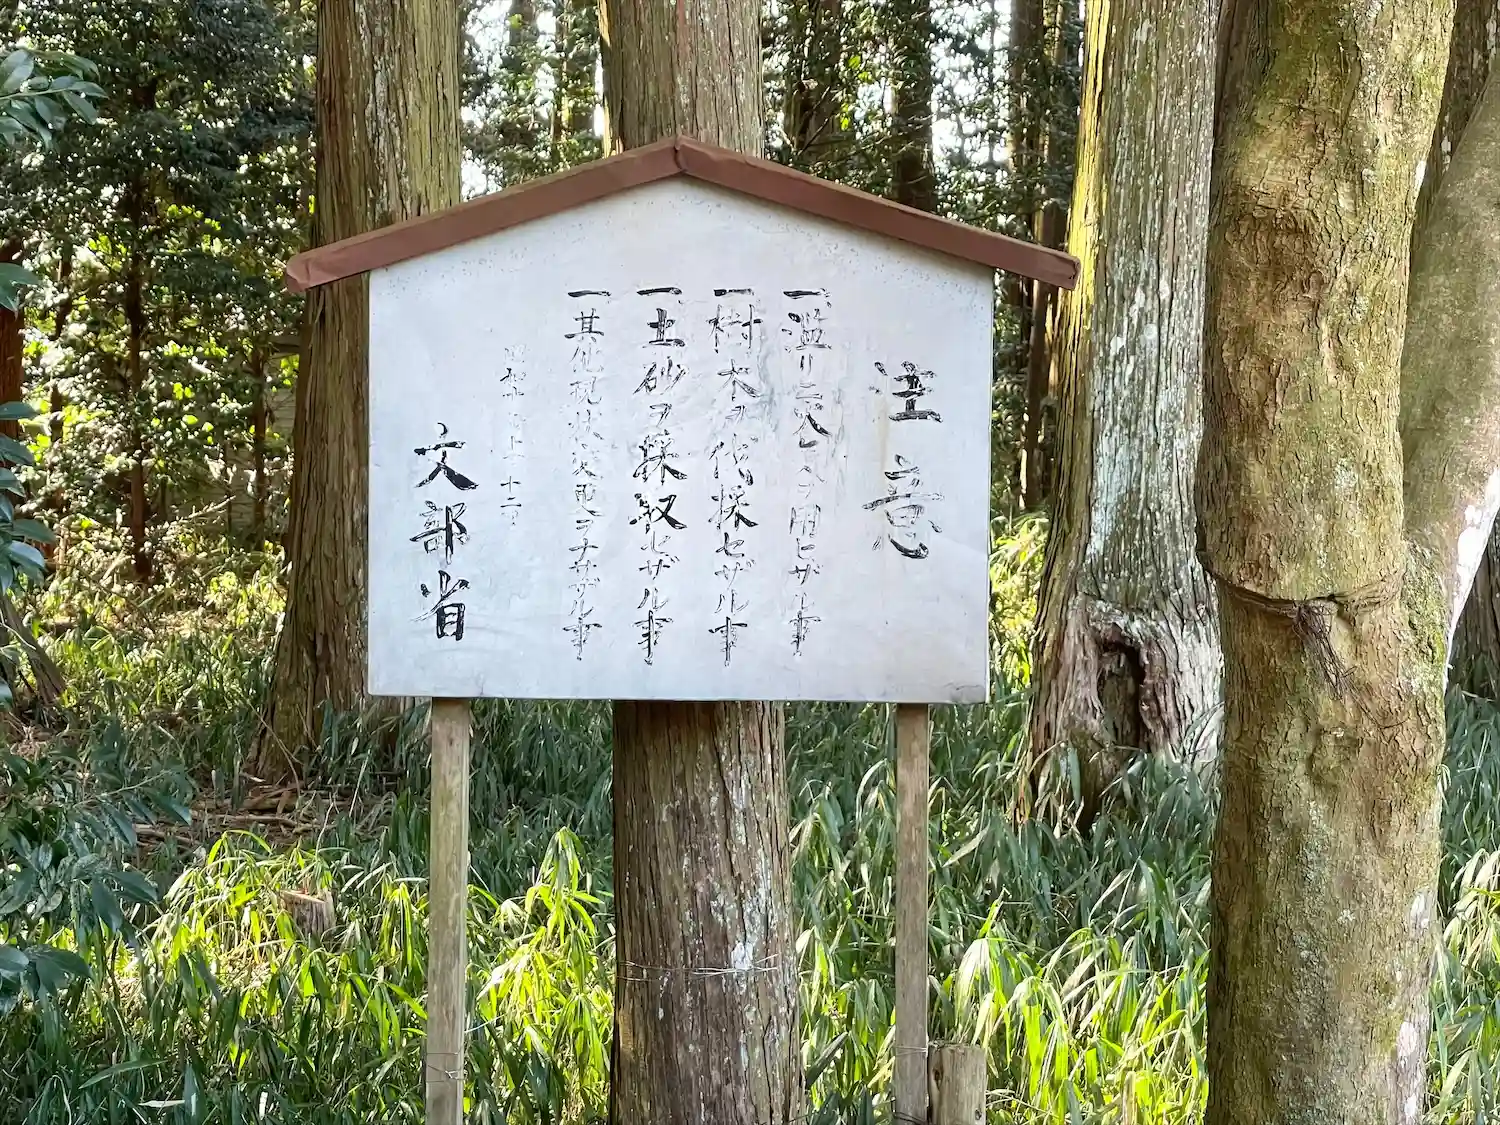 注意
一濫リニ火レヲ用ヒザル事
一樹木ヲ伐採セザル事
一土砂ヲ採取セザル事
一其他現状変更ヲナサザル事
昭和 十二
文部省